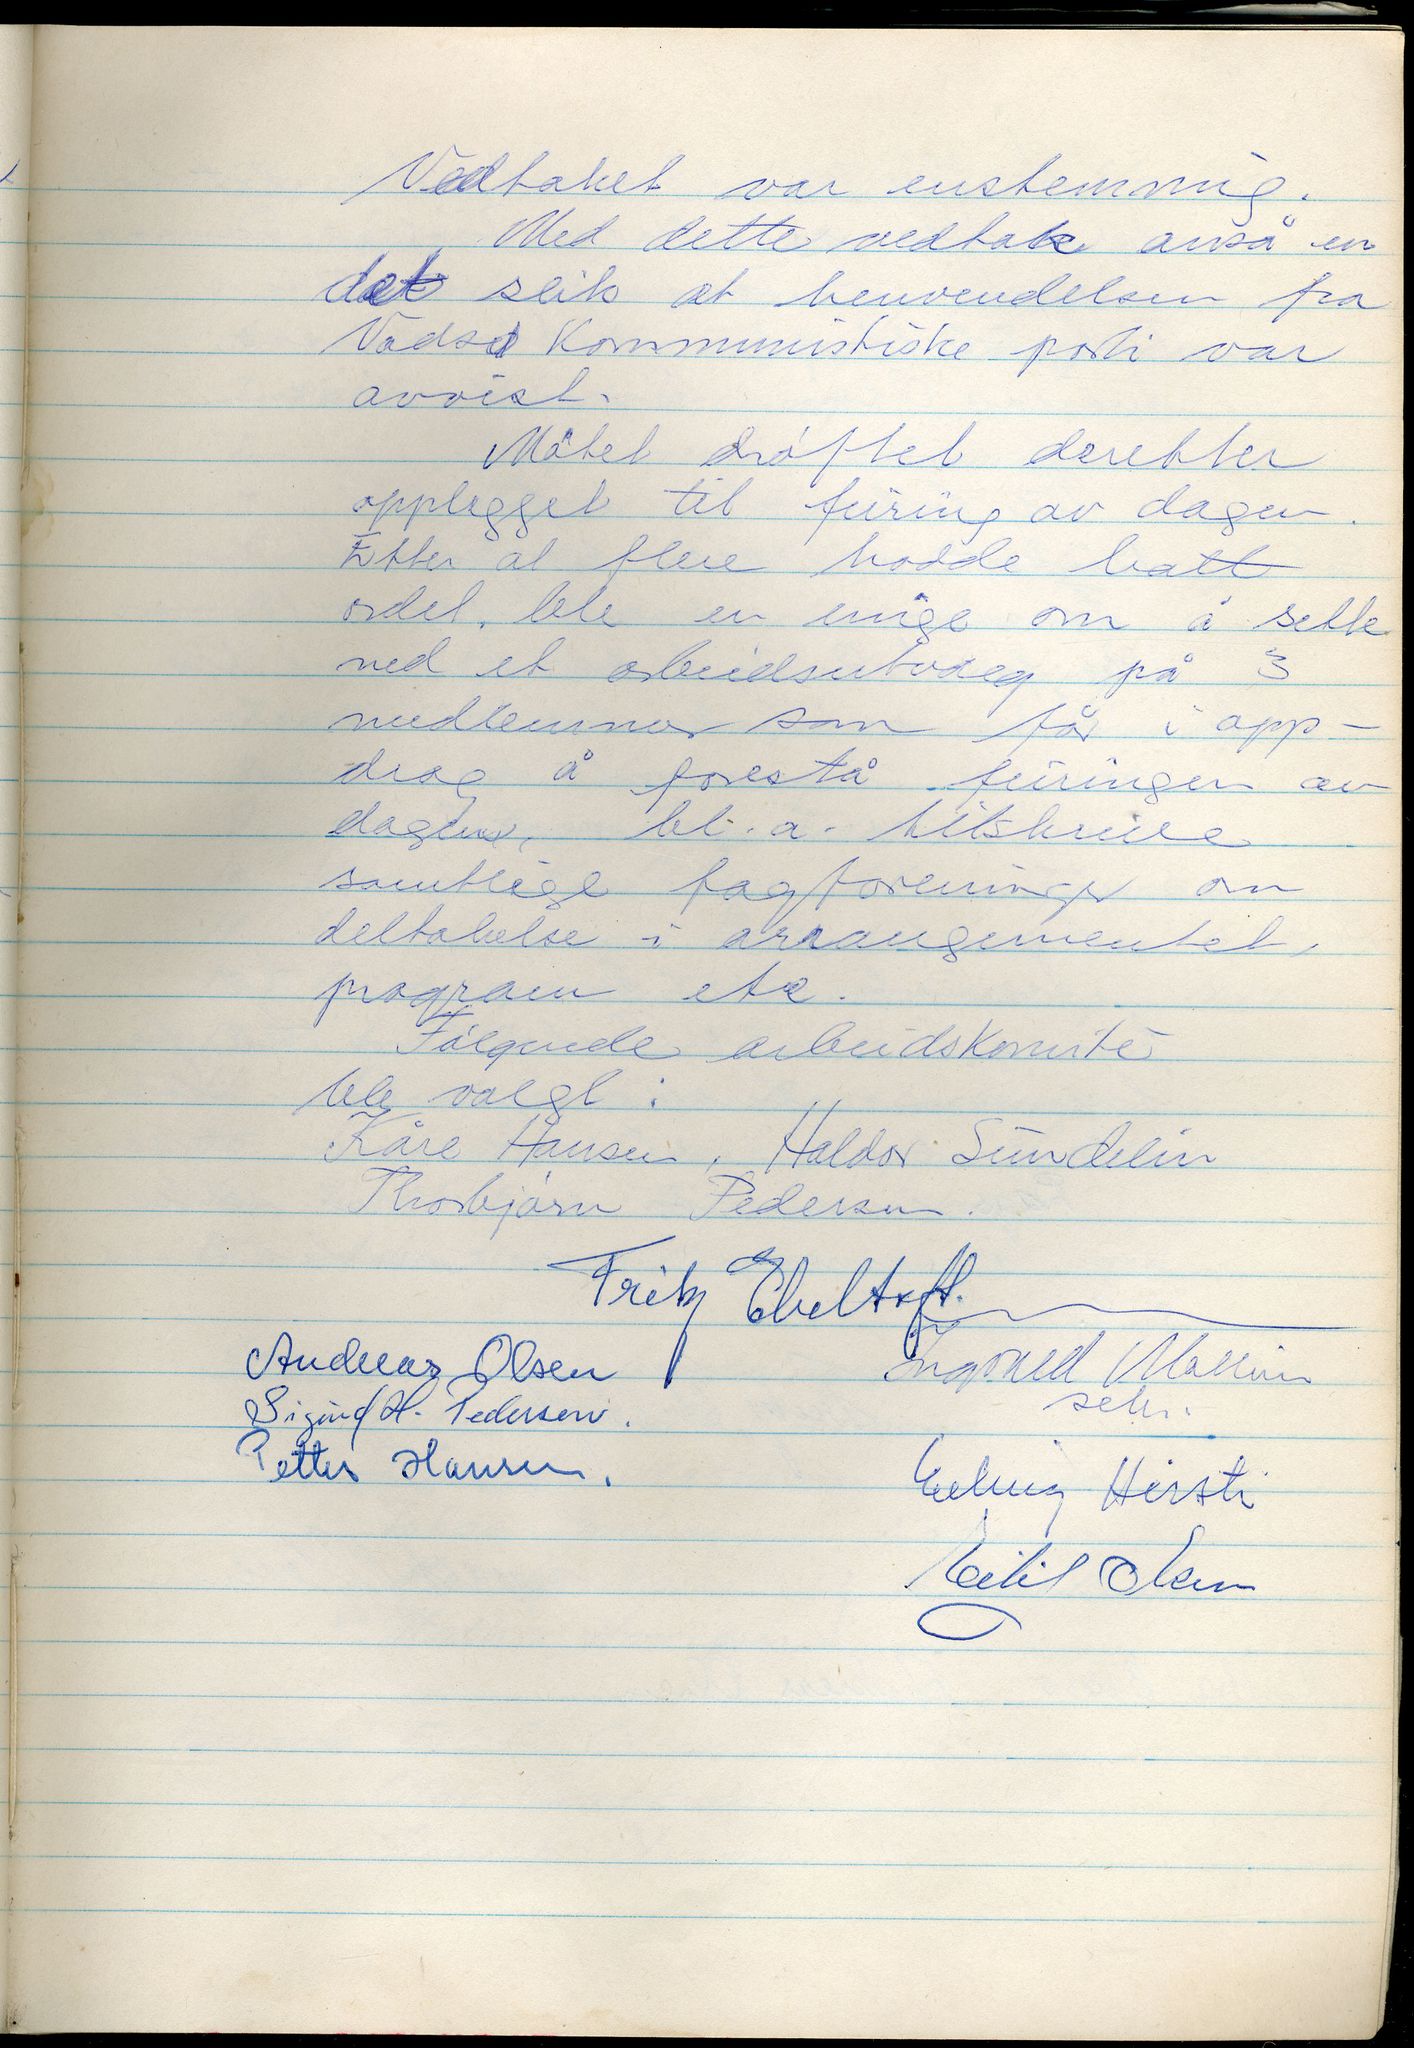 Vedtaket var enstemmig.
Med dette vedtak anså en
det slik at henvendelsen fra
Vadsø Kommunistiske parti var
avvist.
Møtet drøftet deretter
opplegget til feiring av dagen.
Etter at flere hadde hatt
ordet, ble en enige om å sette
ned et arbeidsutvalg på 3
medlemmer som får i opp-
drag å forestå feiringen av
dagen, bl. a. tilskrive
samtlige fagforeninger om
deltakelse i arrangementet,
program etc.
Følgende arbeidskomite
ble valgt:
Kåre Hansen, Haldor Sundelin
Thorbjørn Pedersen.
Fritz Ebeltoft.
Andreas Olsen
Ingvald
sekr.
Sigurd H. Pedersen.
Petter Hansen.
Hirsti
Olsen